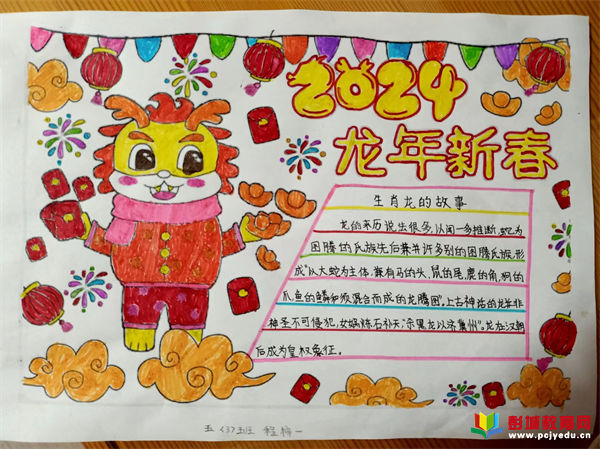 2024
龙年新春
生肖龙的故事
龙的来历说法很多,从闻一多推断,蛇为
图腾的氏族先后兼并许多别的图腾氏族,形
成"以大蛇为主体,兼有马的头、鼠的尾、鹿的角、狗的
爪、鱼的鳞和须混合而成的龙腾图",上古神话的龙年非
神圣不可侵犯,女娲炼石补天,"杀黑龙以济冀州"。龙在汉朝
后成为皇权象征。
五〈3〉班 程梓一
彭城教育网
www.pcjyedu.cn